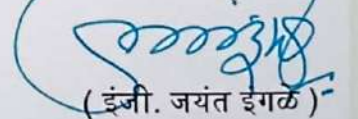 ( इंजी. जयंत इंगळे )